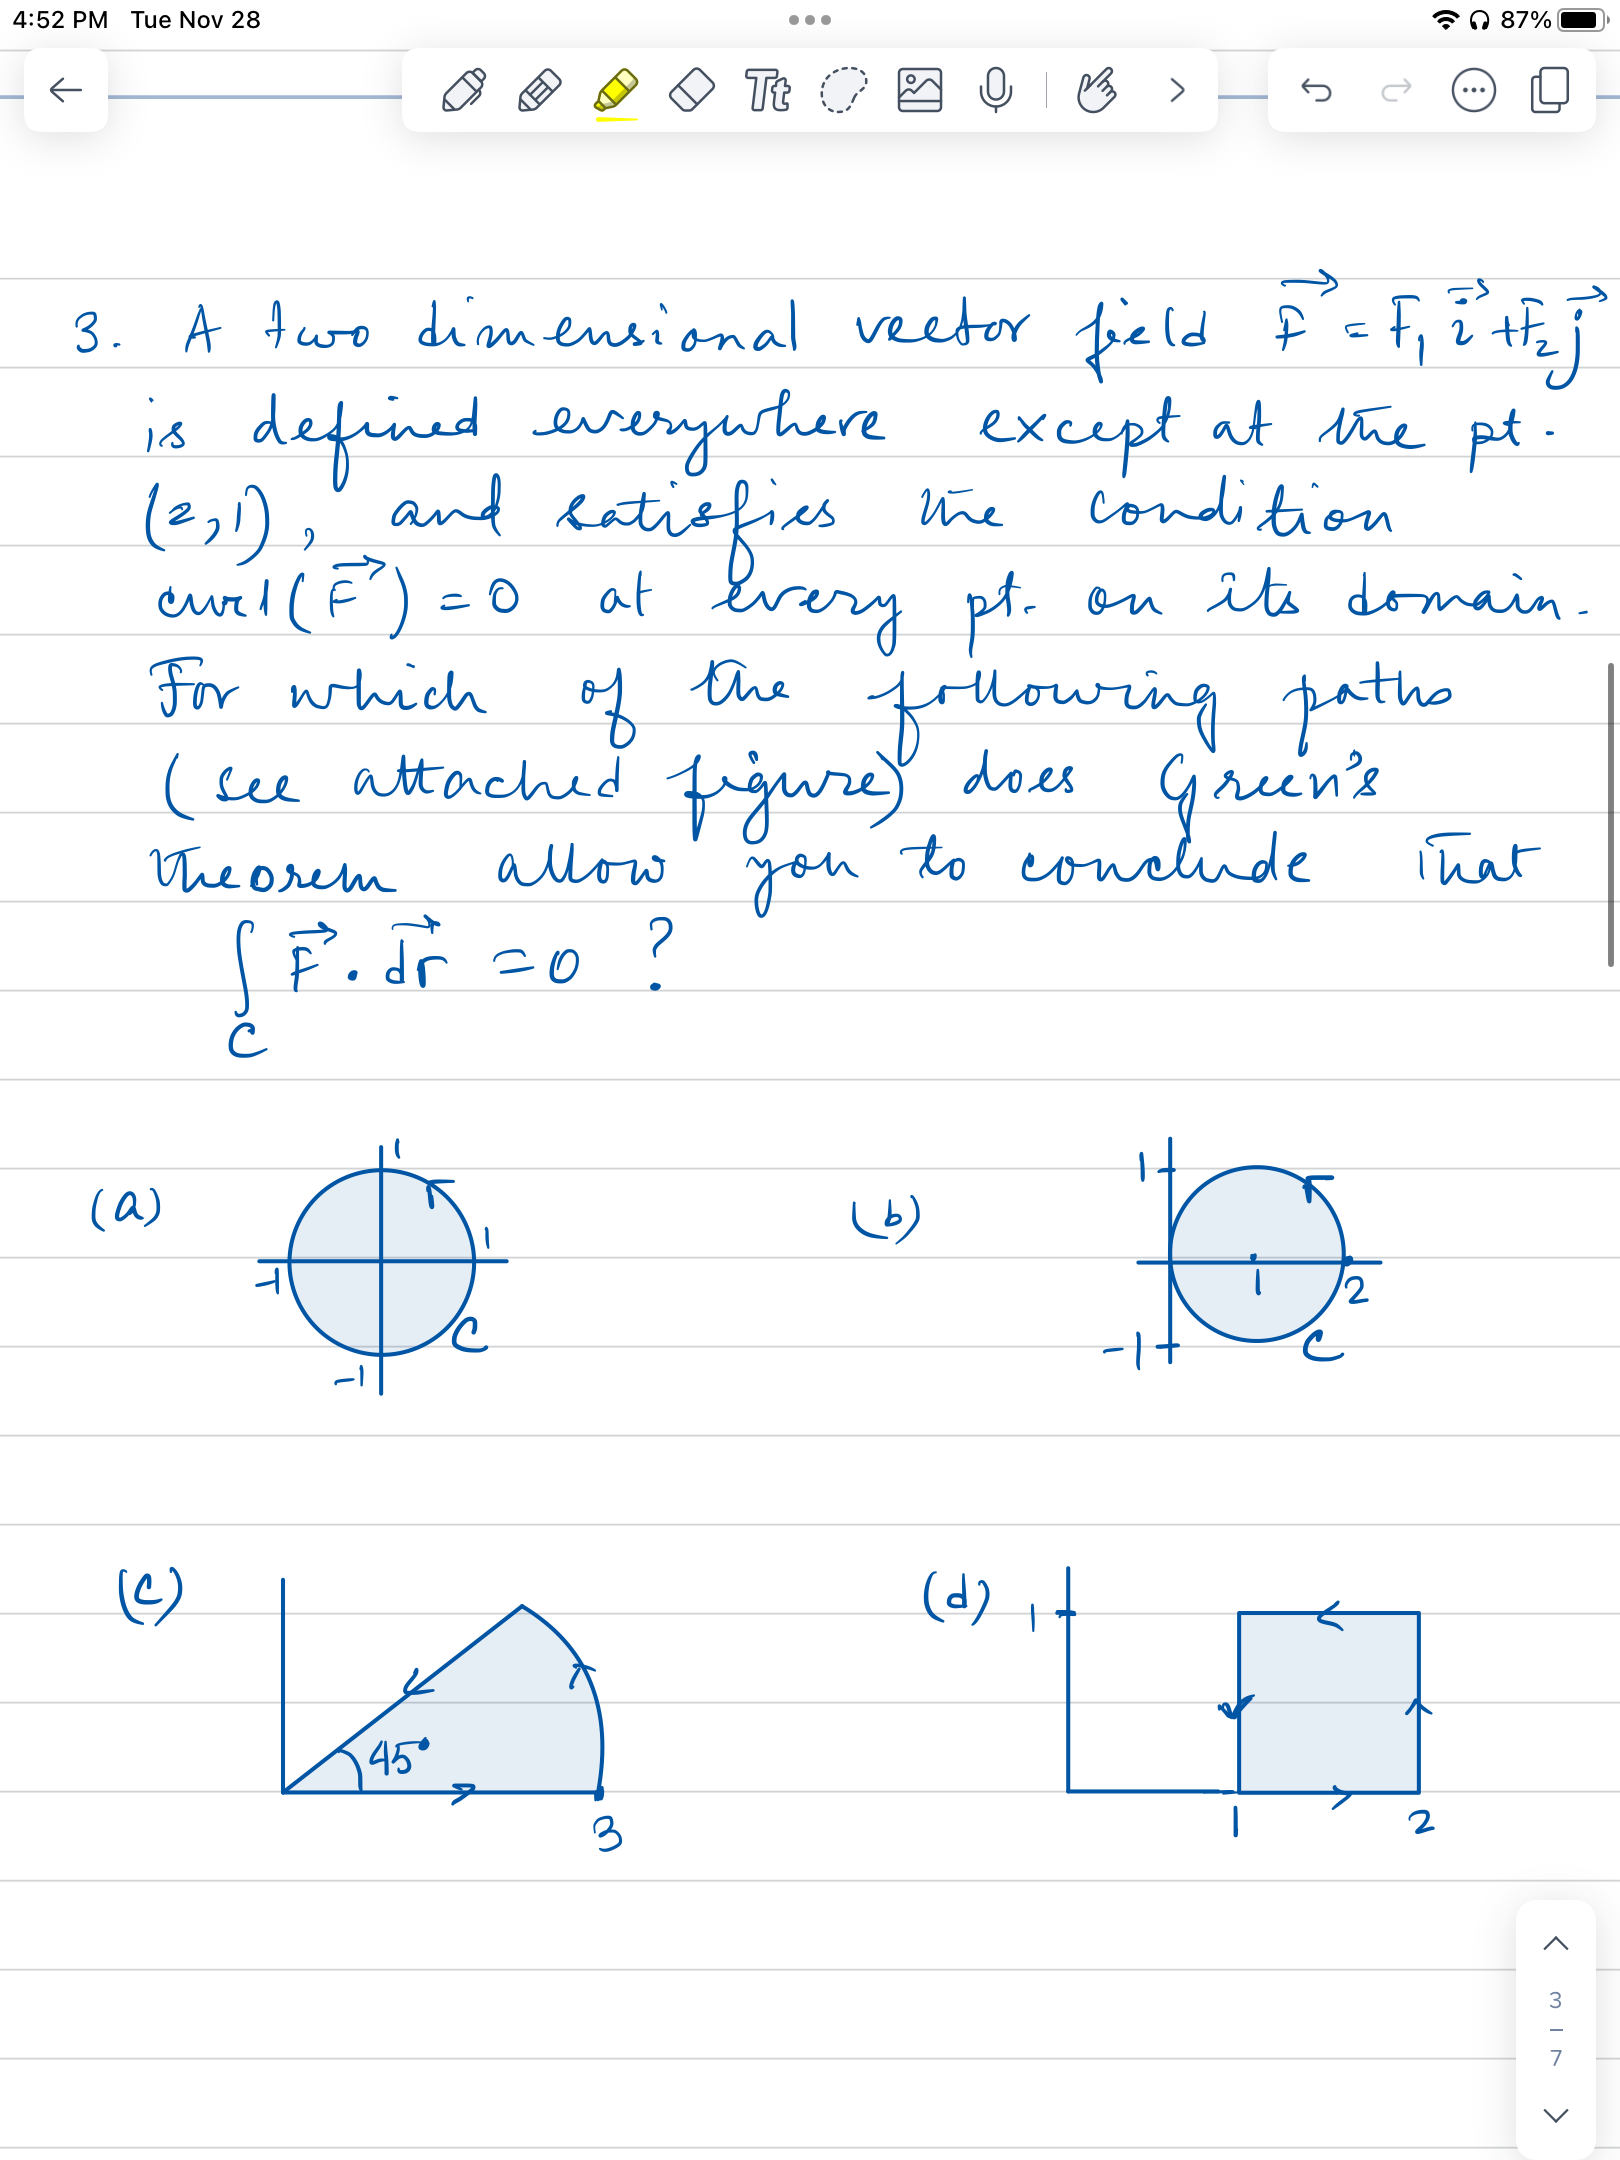 4:52 PM Tue Nov 28 87%
Tt
3. A two dimensional vector field F = F₁ i + F₂ j
is defined everywhere except at the pt.
(2,1), and satisfies the condition
curl(F) = 0 at every pt. on its domain.
For which of the following paths
(see attached figure) does Green's
theorem allow you to conclude that
∫ F · dr = 0 ?
C
(a) 1 1 -1 -1 C
(b) 1 1 2 -1 C
(c) 45° 3
(d) 1 1 2
3
7